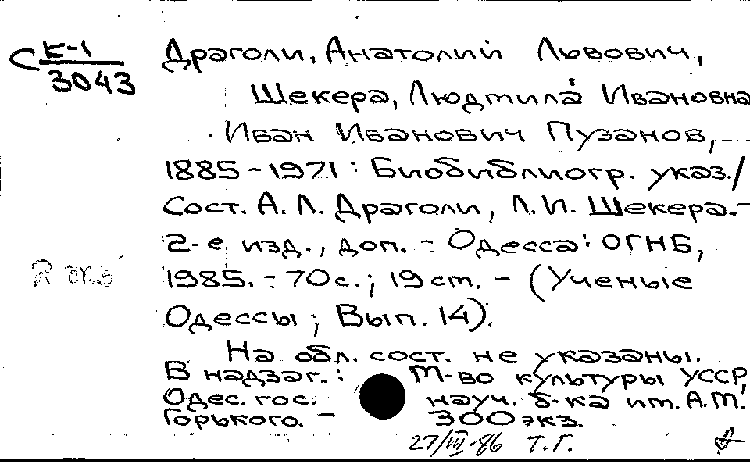 С К-1
3043
Драголи, Анатолий Львович,
Шекера, Людмила Ивановна
Иван Иванович Пузанов,
1885-1971 : Биобиблиогр. указ./
Сост. А. Л. Драголи, Л. И. Шекера.-
2-е изд., доп. - Одесса : ОГНБ,
1985. - 70 с. ; 19 см. - (Ученые
Одессы ; Вып. 14).
На обл. сост. не указаны.
В надзаг. : М-во культуры УССР,
Одес. гос. науч. б-ка им. А.М.
Горького. - 300 экз.
27/III-86 Т.Г.